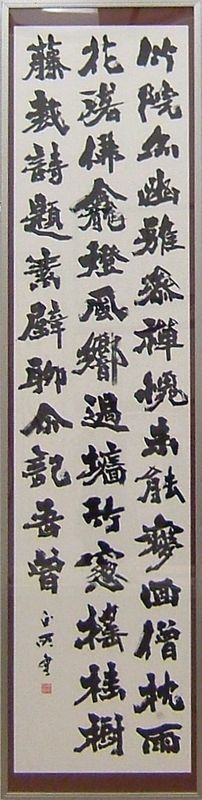 竹院幽雅參禪愧未能夢回僧枕雨
花落佛龕燈風響過牆竹窓搖挂樹
藤裁詩題素壁聊尒記吾曾